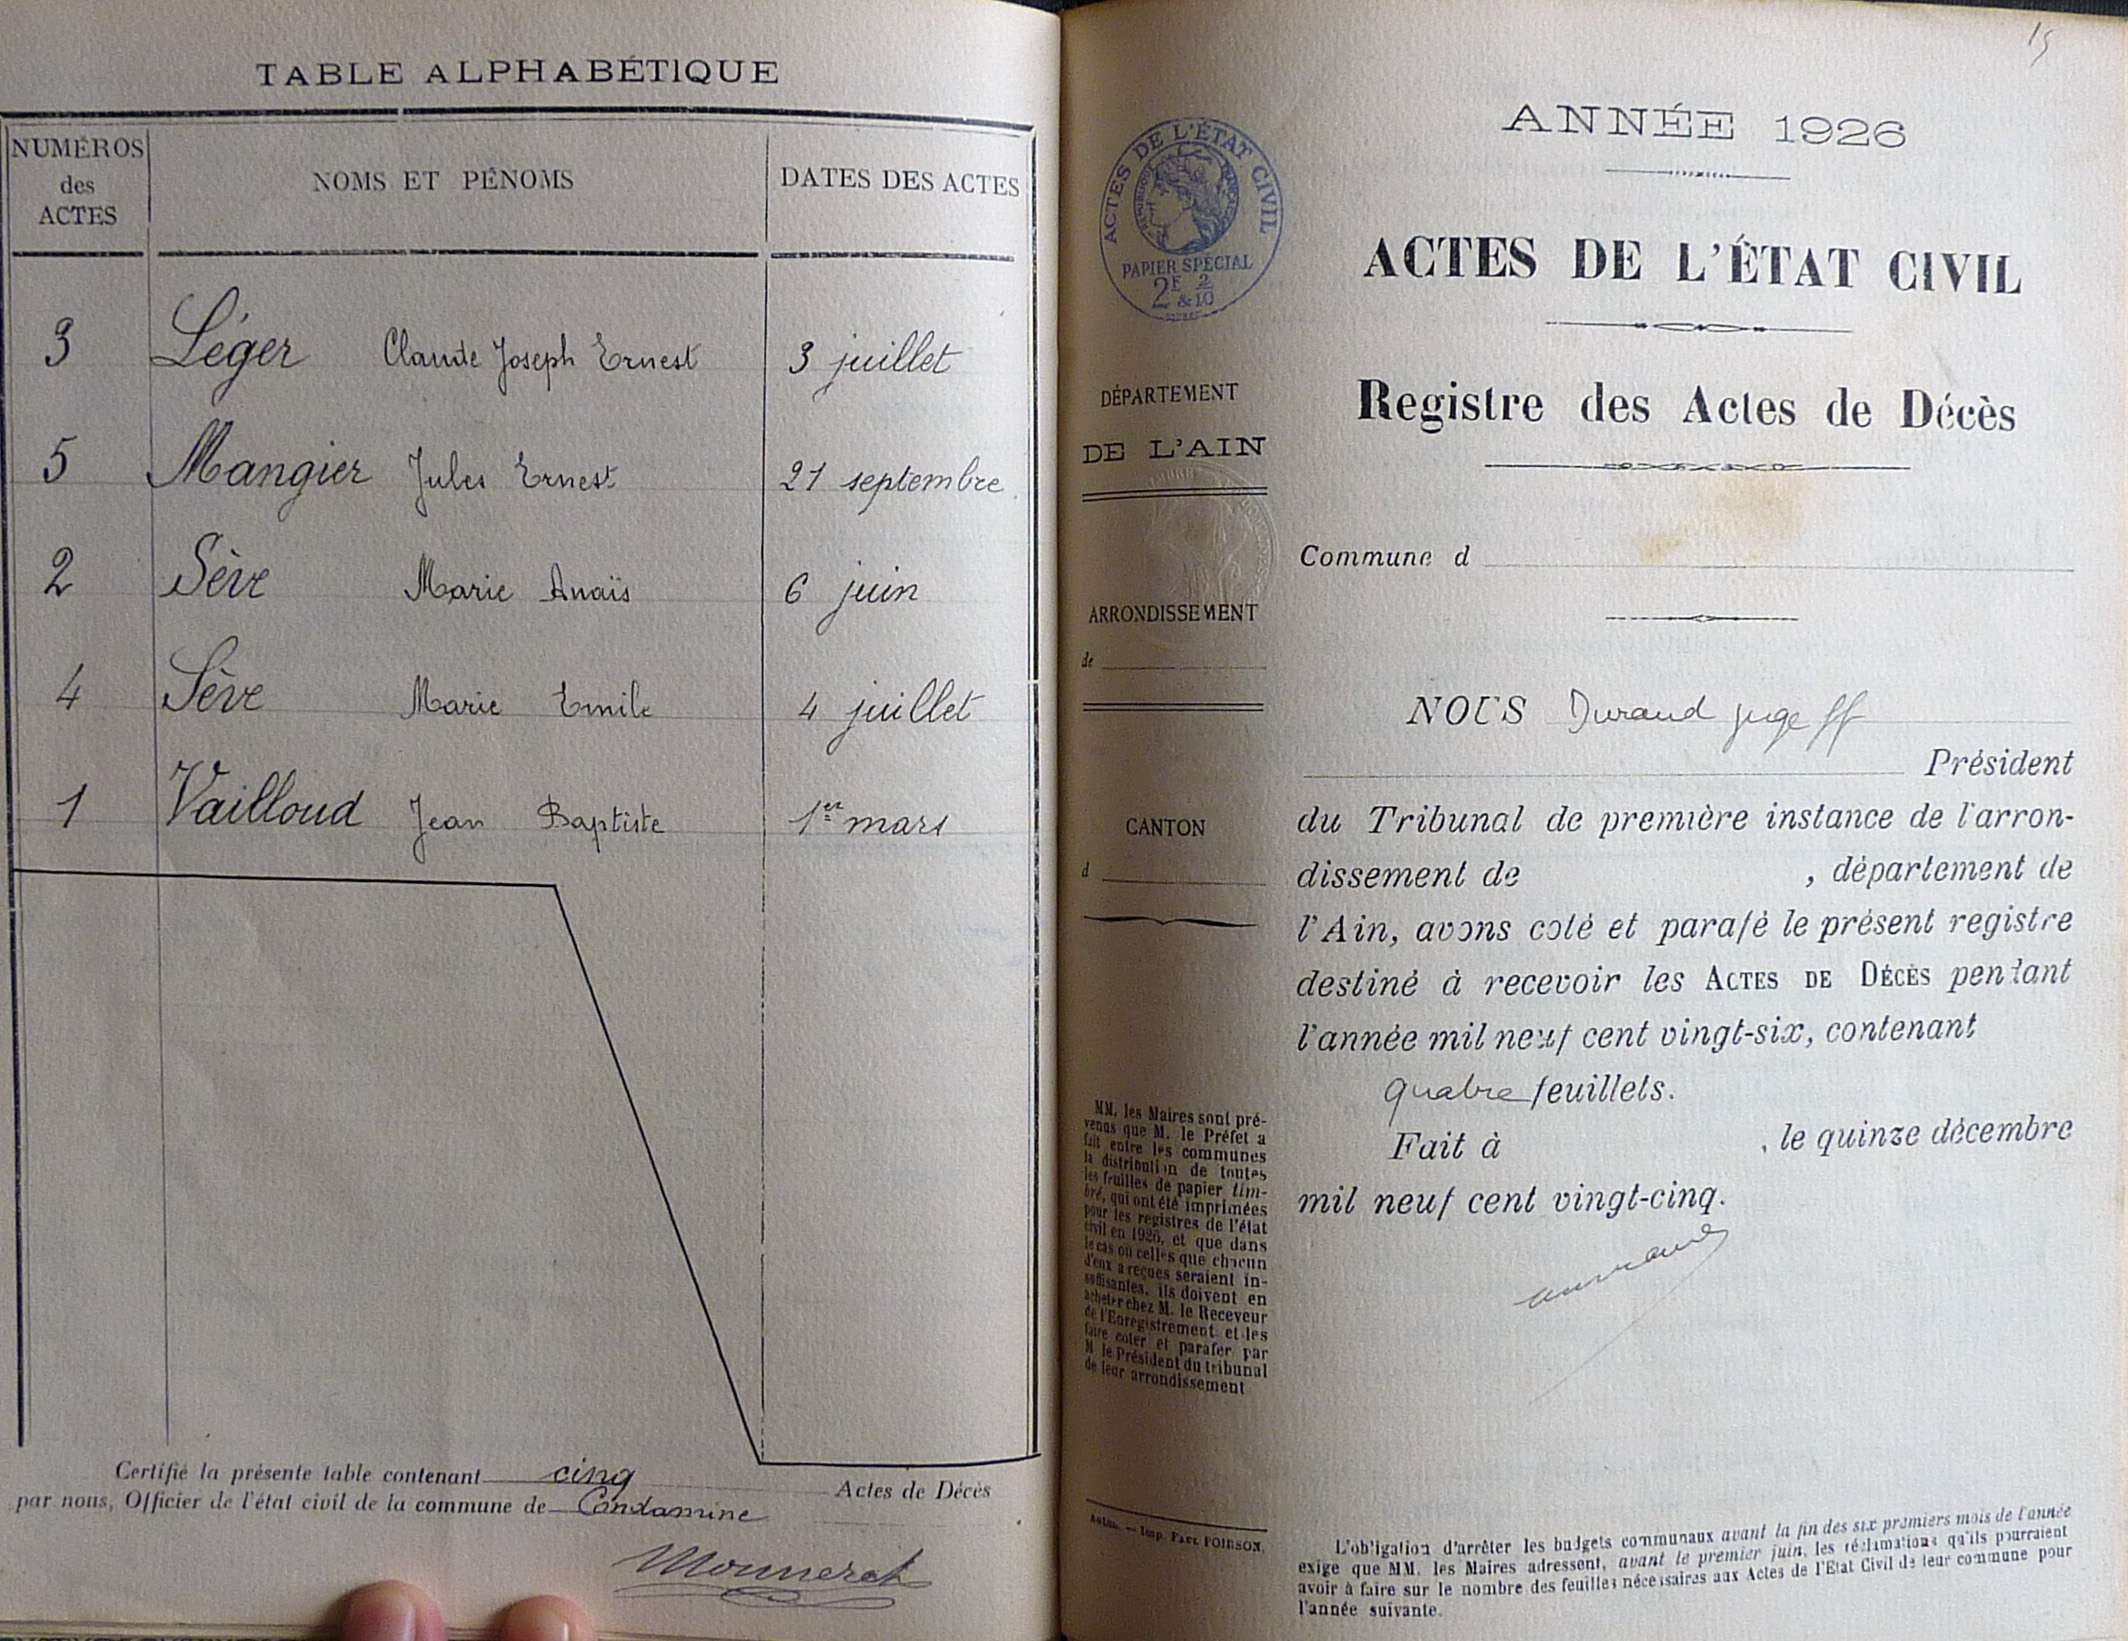 TABLE ALPHABÉTIQUE
NUMÉROS des ACTES
NOMS ET PÉNOMS
DATES DES ACTES
3 Léger Claude Joseph Ernest 3 juillet
5 Mangier Jules Ernest 21 septembre
2 Sève Marie Anaïs 6 juin
4 Sève Marie Emile 4 juillet
1 Vailloud Jean Baptiste 1er mars
Certifié la présente table contenant cinq Actes de Décès
par nous, Officier de l'état civil de la commune de Condamine
Monnerat
19
ACTES DE L'ÉTAT CIVIL
PAPIER SPÉCIAL
2F & 2/10
DÉPARTEMENT
DE L'AIN
ARRONDISSEMENT
de
CANTON
d
MM. les Maires sont pré-
venus que M. le Préfet a
fait entre les communes
la distribution de toutes
les feuilles de papier tim-
bré, qui ont été imprimées
pour les registres de l'état
civil en 1926, et que dans
le cas où celles que chacun
d'eux a reçues seraient in-
suffisantes, ils doivent en
acheter chez M. le Receveur
de l'Enregistrement et les
faire coter et parafer par
M le Président du tribunal
de leur arrondissement
Imp. PAUL POIRSON.
ANNÉE 1926
ACTES DE L'ÉTAT CIVIL
Registre des Actes de Décès
Commune d
NOUS Durand juge ff
Président
du Tribunal de première instance de l'arron-
dissement de , département de
l'Ain, avons coté et parafé le présent registre
destiné à recevoir les ACTES DE DÉCÈS pendant
l'année mil neuf cent vingt-six, contenant
quatre feuillets.
Fait à , le quinze décembre
mil neuf cent vingt-cinq.
L'obligation d'arrêter les budgets communaux avant la fin des six premiers mois de l'année
exige que MM. les Maires adressent, avant le premier juin, les réclamations qu'ils pourraient
avoir à faire sur le nombre des feuilles nécessaires aux Actes de l'Etat Civil de leur commune pour
l'année suivante.